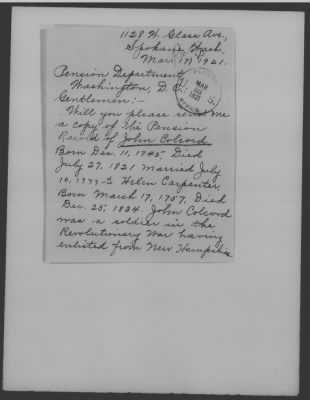 1128 W. Glass Ave.,
Spokane, Wash.
Mar. 17, 1921.
Pension Department,
Washington, D. C.
Gentlemen:-
Will you please send me
a copy of the Pension
Record of John Colcord
Born Dec. 11, 1745, Died
July 27, 1821 Married July
10, 1777 to Helen Carpenter,
Born March 17, 1757. Died
Dec. 25, 1834. John Colcord
was a soldier in the
Revolutionary War having
enlisted from New Hampshire
MAR
1921